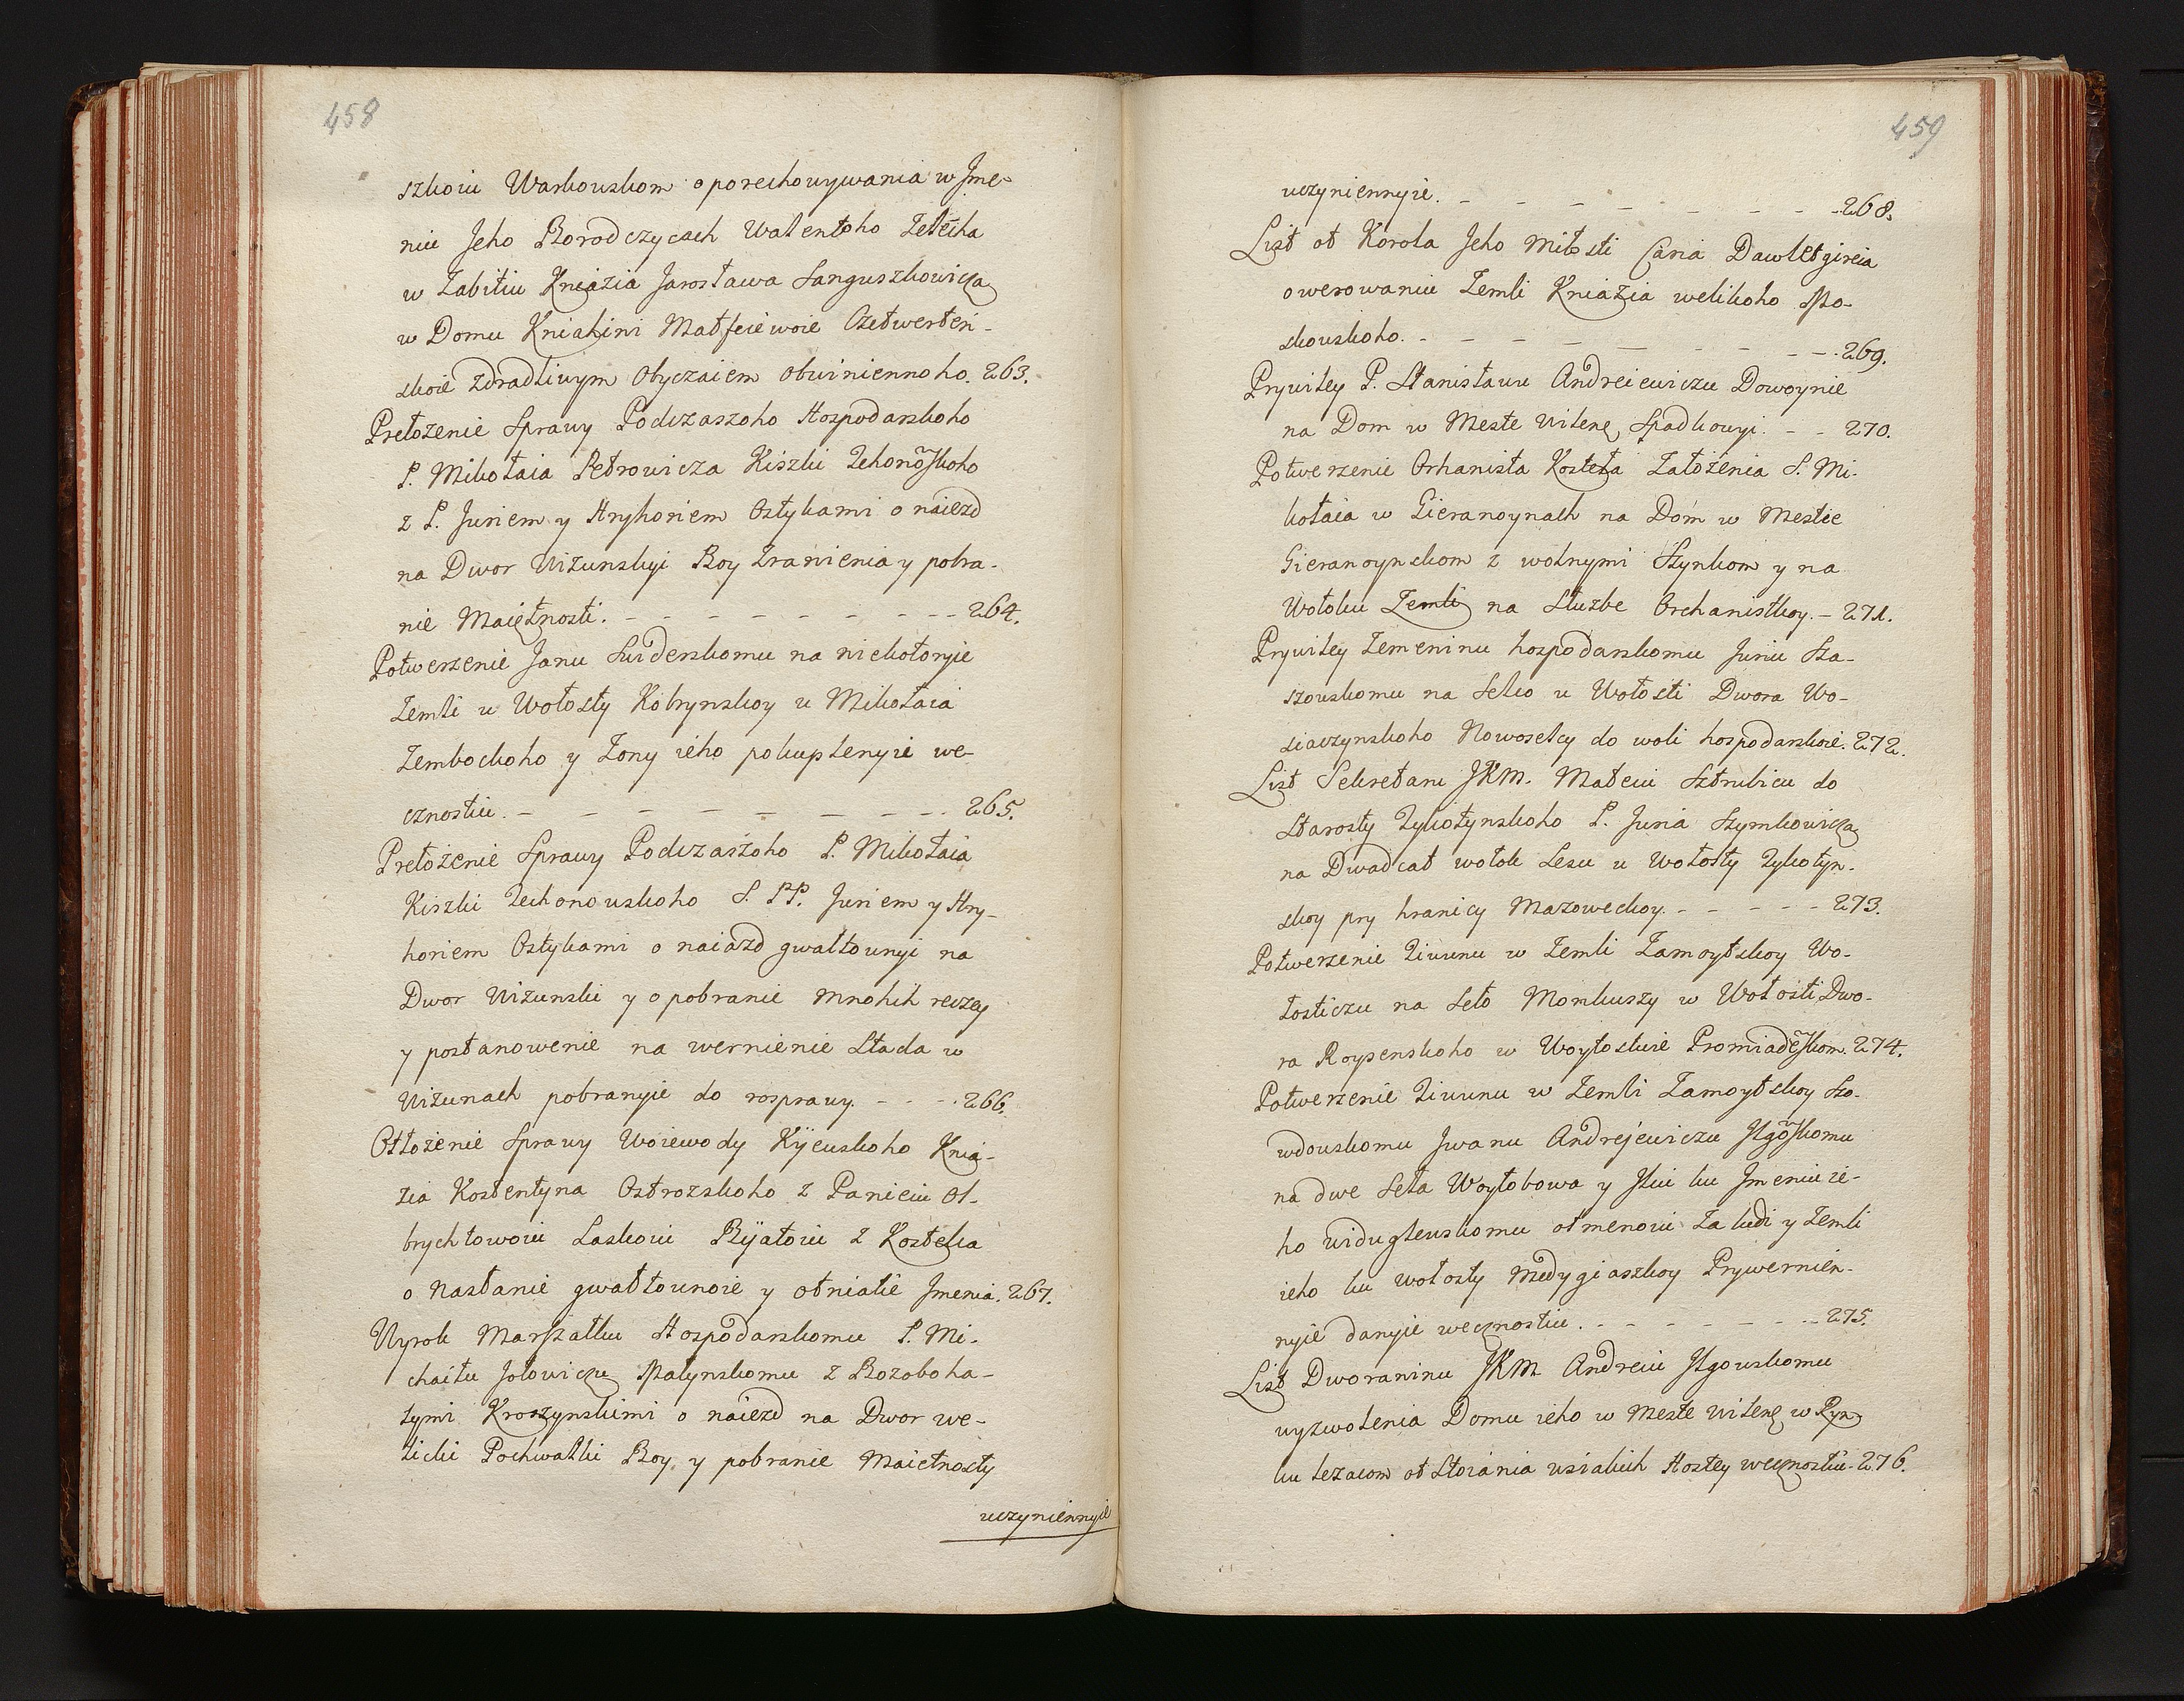 458
szkoiu Warkouskom o porechowywania w Jme-
niu Jeho Borodczycach Walentoho Lelecha
w Zabitiu Kniazia Jarosława Sanguszkowicza
w Domu Kniahini Matfeiewoie Czetwerteń-
skoie zdradliwym Obyczaiem Obwiniennoho. 263.
Prełożenie Sprawy Podczaszoho Hospodarskoho
P. Mikołaia Petrowicza Kiszki Zehonoskoho
z P. Juriem y Hryhoriem Ostykami o naiezd
na Dwor Uiżunskyi Boy Zranienia y pobra-
nie Maiętnosti. - - - - - - - - 264.
Potwerżenie Janu Swiderskomu na niekotoryie
Zemli u Wołosty Kobrynskoy u Mikołaia
Zembockoho y Żony ieho pokuplenyie we-
cznostiu. - - - - - - - - 265.
Prełożenie Sprawy Podczaszoho P. Mikołaia
Kiszki Zechonouskoho S. PP. Juriem y Hry-
horiem Ostykami o naiazd gwałtounyi na
Dwor Uiżunski y o pobranie mnohih reczey
y postanowenie na wernienie Stada w
Uiżunach pobranyie do rosprawy. - - - . 266.
Otłożenie Sprawy Woiewody Kijeuskoho Knia-
zia Kostentyna Ostrozskoho z Panieiu Ol-
brychtowoiu Laskoiu Bijatoiu z Kostelca
o Nasłanie gwałtounoie y otniatie Jmenia. 267.
Wyrok Marszałku Hospodarskomu P. Mi-
chaiłu Jołowiczu Małynskomu z Bozoboha-
tymi Kroszynskimi o naiezd na Dwor we-
licki Pochwałki Boy, y pobranie Maiętnosty
uczyniennyie

459
uczyniennyie. - - - - - - - - 268.
List ot Korola Jeho Miłosti Caria Dawletgireia
o werowaniu Zemli Kniazia welikoho Mo-
skouskoho. - - - - - - - - 269.
Prywiley P. Stanisławu Andreiewiczu Dowoynie
na Dom w Meste Wilene Spadkowyi. - - 270.
Potwerżenie Orhanista Kosteła Założenia S. Mi-
kołaia w Gieranoynach na Dom w Mestie
Gieranoynskom z wolnymi Szynkom y na
Wołoku Zemli na Służbe Orchanistkoy. - 271.
Prywiley Zemeninu hospodarskomu Juriu Sza-
szouskomu na Selco u Wołosti Dwora Wo-
siaczynskoho Nowoselcy do woli hospodarskoie. 272.
List Sekretaru JKM. Mateiu Sztrubiczu do
Starosty Tykotynskoho P. Juria Szymkowicza
na Dwadcat wołok Lesu u Wołosty Tykotyn-
skoy pry hranicy Mazoweckoy. - - - - - 273.
Potwerżenie Tiwunu w Zemli Żamoytskoy Wo-
łosticzu na Seło Monkuszy w Wołosti Dwo-
ra Roysenskoho w Woytoskie Promiadeskom. 274.
Potwerżenie Tiwunu w Zemli Żamoytskoy Szo-
wdouskomu Jwanu Andrejewiczu Jlgoskomu
na dwe Seła Woytobowa y Jlui ku Jmeniu ie-
ho Widugleuskomu otmenoiu za ludi y Zemli
ieho ku wołosty Medygiaszkoy Prywernien-
nyie danyie wecznostiu. - - - - - - - - 275.
List Dworaninu JKM Andreiu Jlgouskomu
wyzwolenia Domu ieho w Meste Wilene w Ryn-
ku leżacom ot Stoiania wsiakich Hostey wecznostiu. 276.